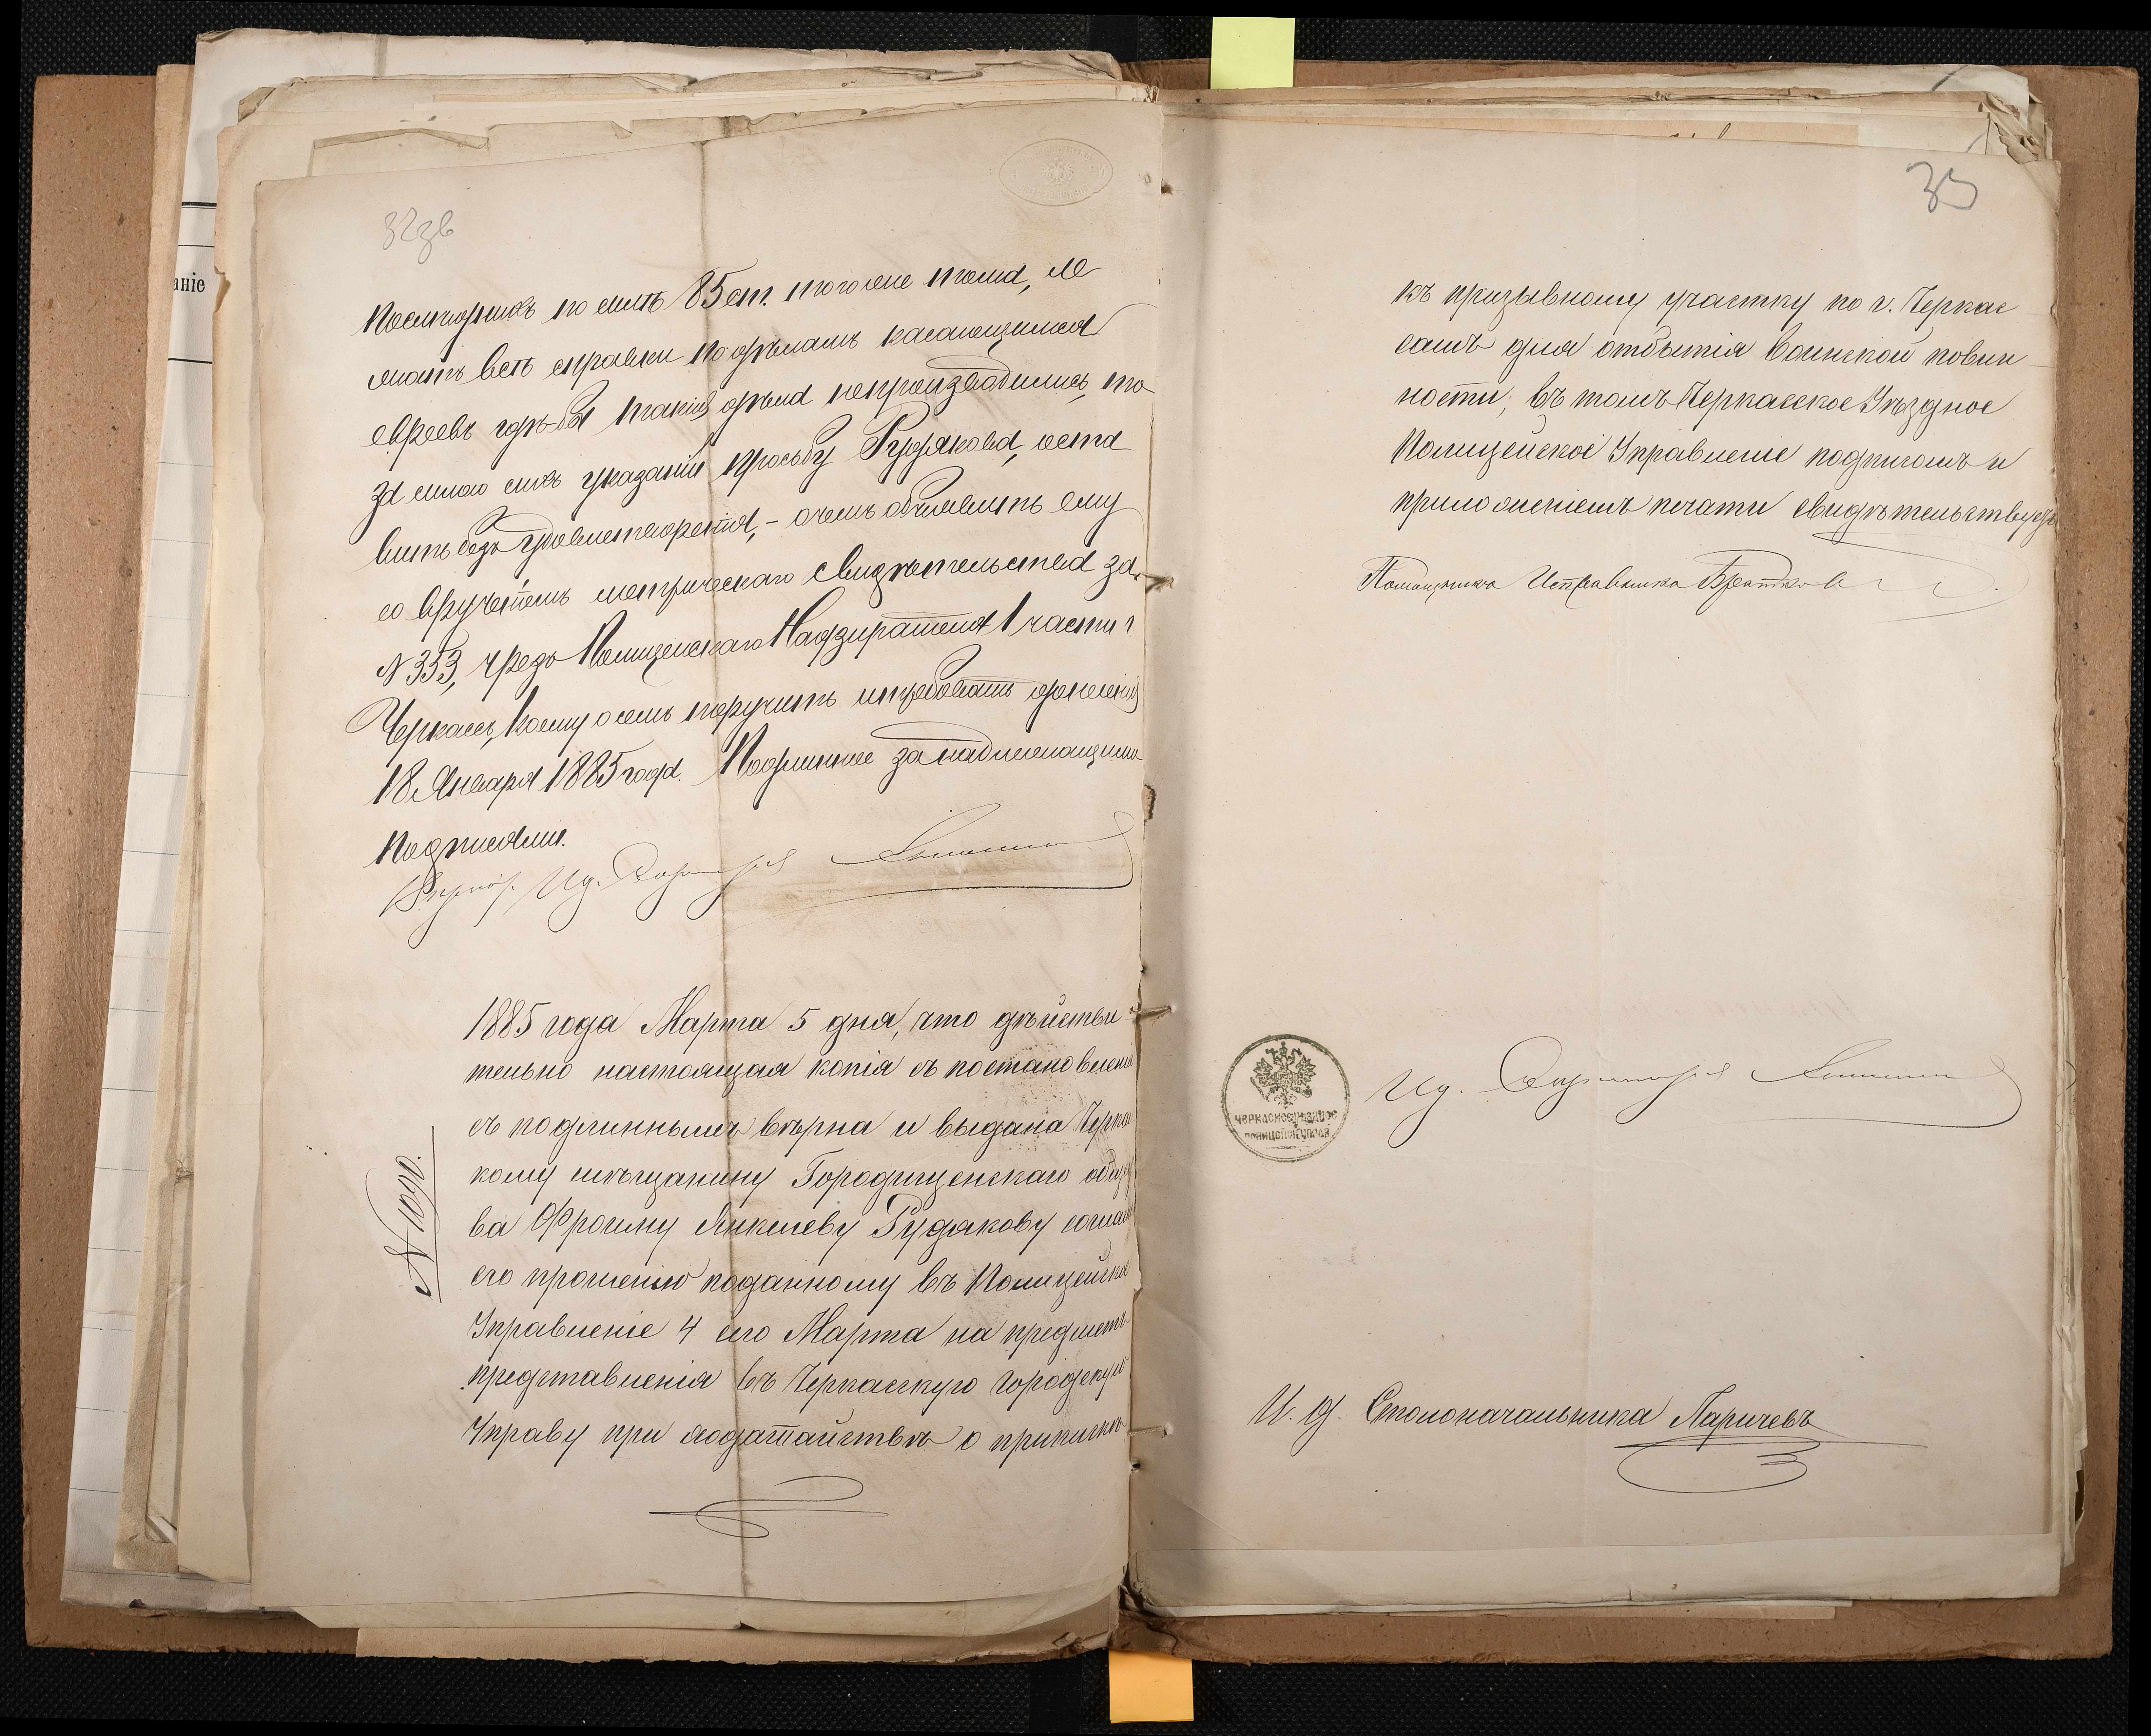 32зв
по силѣ 85 ст. того же тома, не
мать всѣ справки по дѣламъ касающимся
евреевъ гдѣ-бы такія дѣла непроизводились, то
за силою сихъ указаній просьбу Рудякова, оста
вить безъ удовлетворенія, – о чемъ объявить ему
со врученіемъ метрическаго свидѣтельства за
№ 353, чрезъ Полицейскаго Надзирателя 1 части г.
Черкассъ, коему о семъ поручить
18 Января 1885 года. Подлинное за надлежащимъ
подписомъ.
1885 года Марта 5 дня, что дѣйстви
тельно настоящая копія съ постановленія
съ подлиннымъ вѣрна и выдана Черкас
кому мѣщанину Городищенскаго общест
ва Фроиму Янкелеву Рудякову согласно
его прошенію поданному въ Полицейское
Управленіе 4 сего Марта на предметъ
представленія въ Черкасскую Городскую
Управу при ходатайствѣ о припискѣ
№ 1090.
33
къ призывному участку по г. Черкас
самъ для отбытія воинской повин
ности, въ томъ Черкасское Уѣздное
Полицейское Управленіе подписомъ и
приложеніемъ печати свидѣтельствуетъ
Помощникъ Исправника
ЧЕРКАСКОЕ УѢЗДНОЕ
И. д. Столоначальника Ларичевъ
аніе